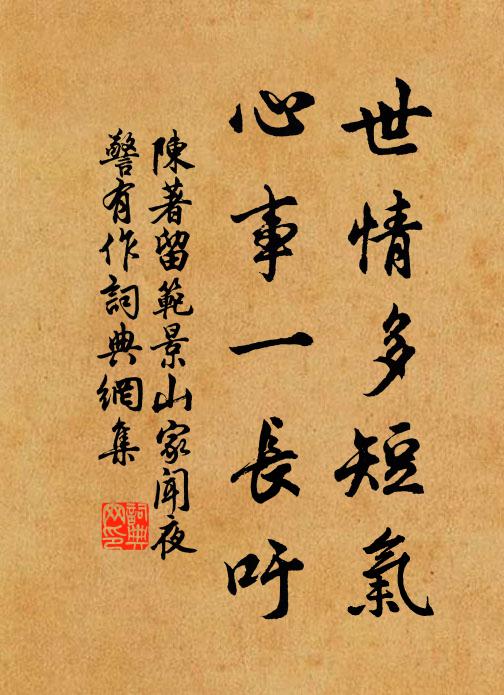 世情多短氣
心事一長吁
陳著留範景山家聞夜
警有作詞典網集
詞典
网印